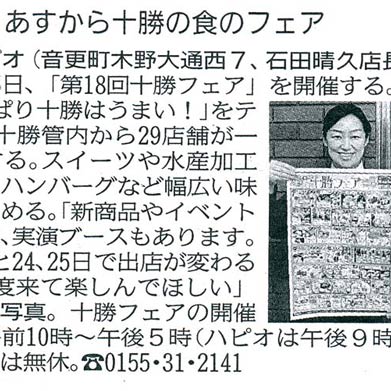 あすから十勝の食のフェア
オ（音更町木野大通西7、石田晴久店長
日、「第18回十勝フェア」を開催する。
ぱり十勝はうまい！」をテ
十勝管内から29店舗が一
する。スイーツや水産加工
ハンバーグなど幅広い味
める。「新商品やイベント
、実演ブースもあります。
と24、25日で出店が変わる
度来て楽しんでほしい」
写真。十勝フェアの開催
前10時～午後5時（ハピオは午後9時
は無休。☎0155・31・2141
十勝フェア